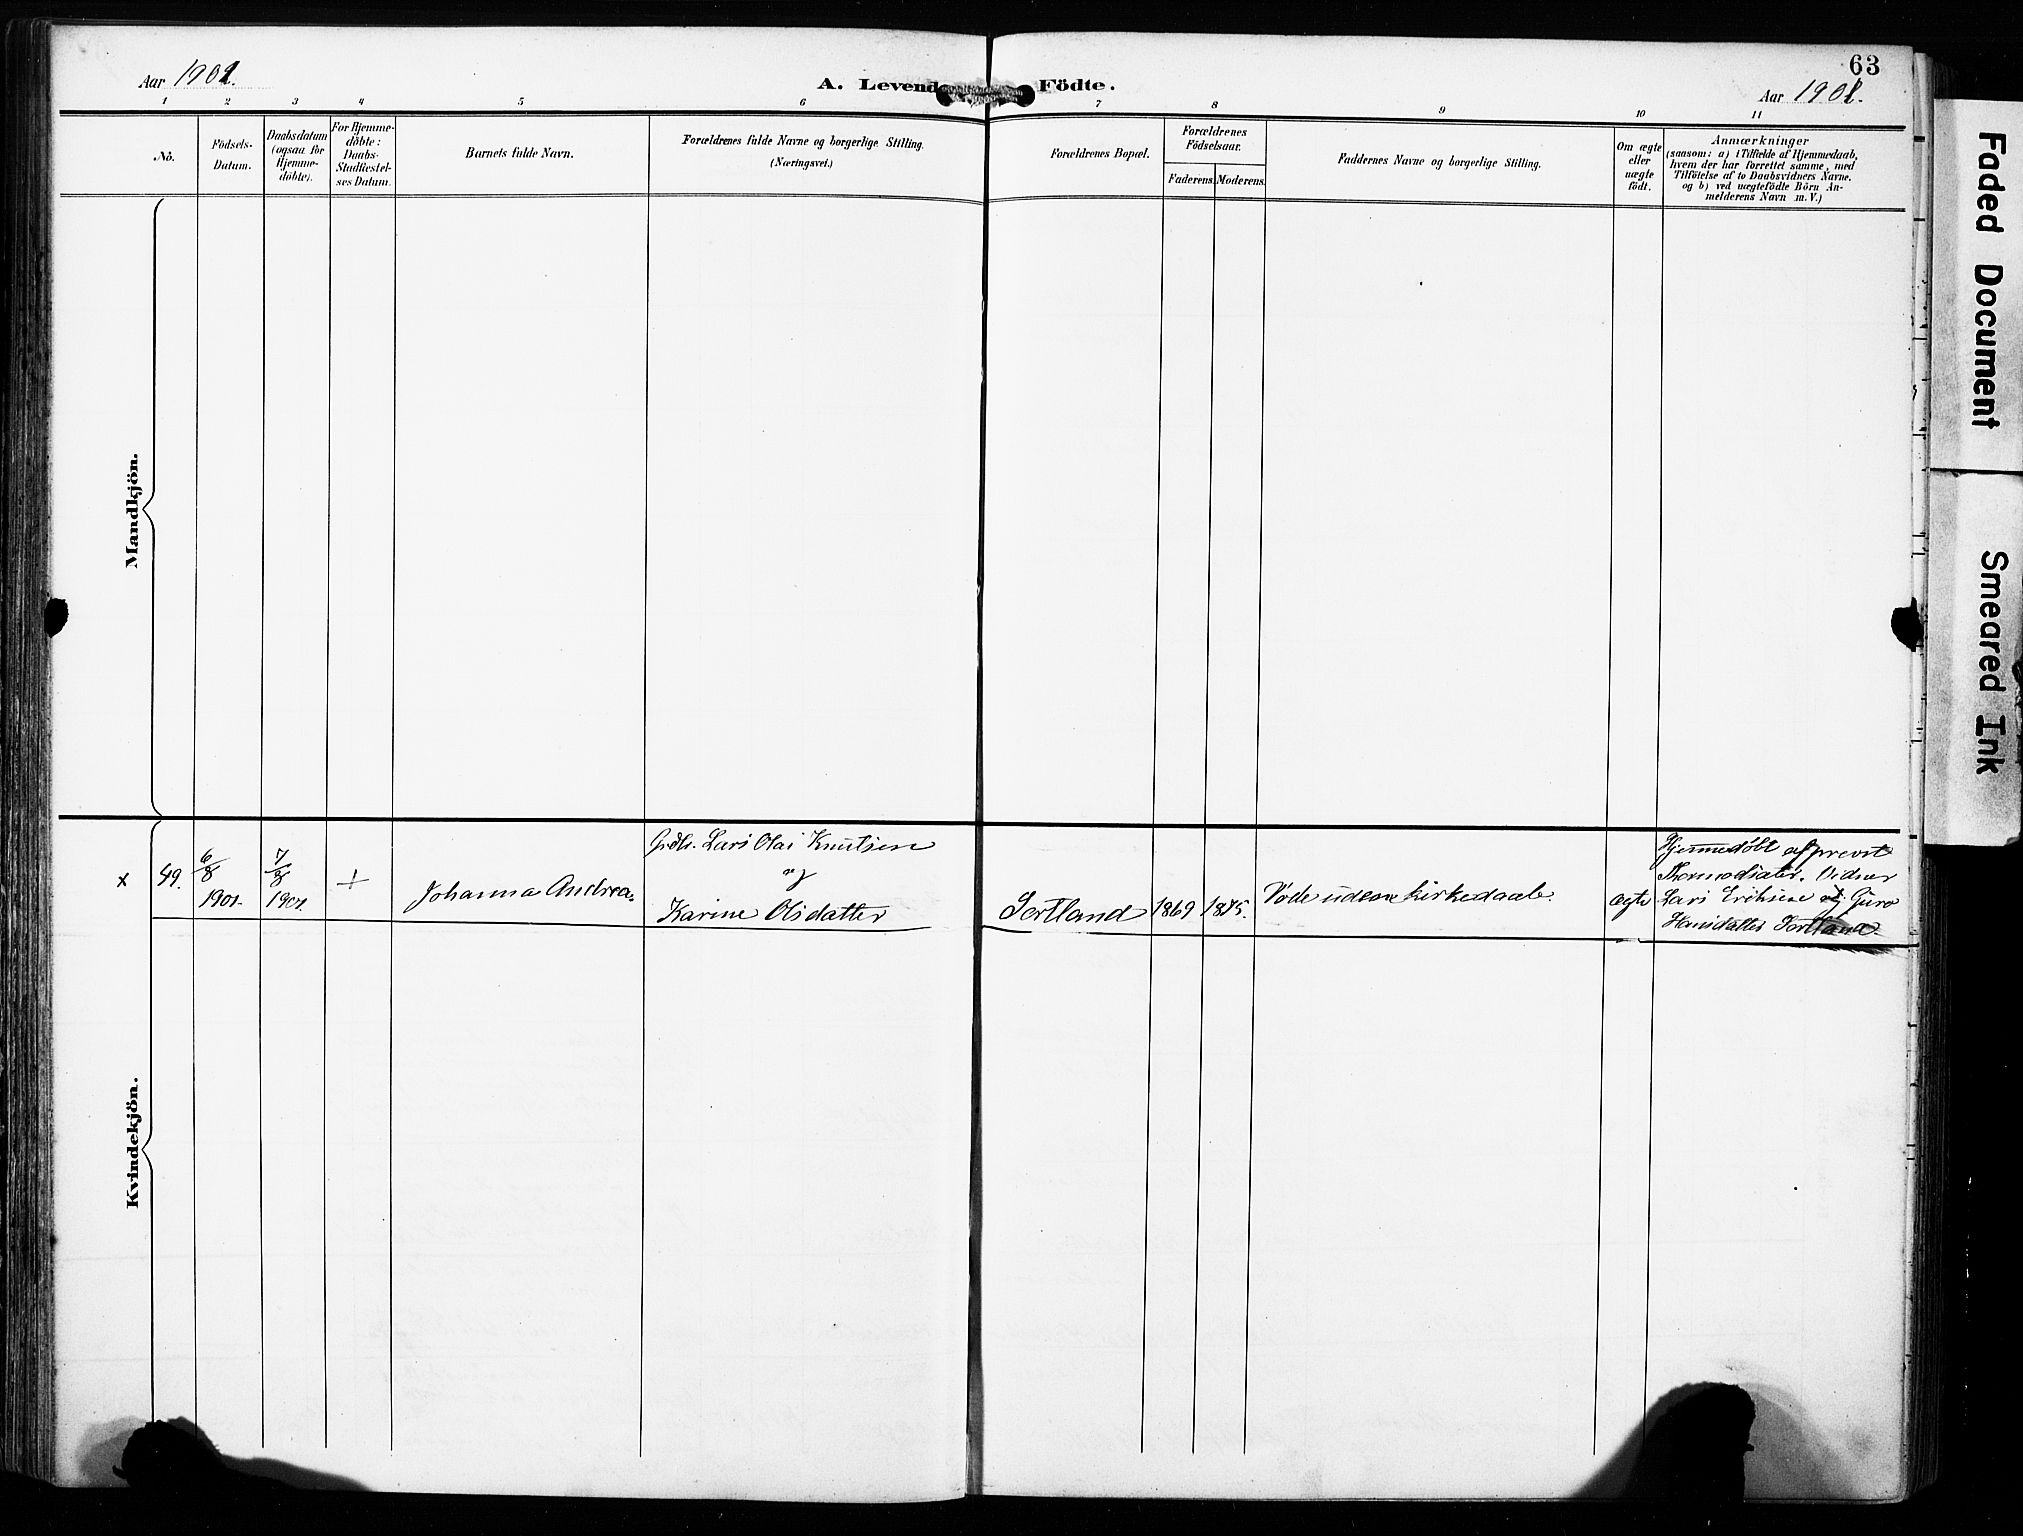 63
Aar 1901.
A. Levende Födte.
Aar 1901.
1 2 3 4 5 6 7 8 9 10 11
No.
Födsels-
Datum.
Daabsdatum
(ogsaa for
Hjemme-
döbte).
For Hjemme-
döbte:
Daabs-
Stadfæstel-
ses Datum.
Barnets fulde Navn.
Forældrenes fulde Navne og borgerlige Stilling.
(Næringsvei.)
Forældrenes Bopæl.
Forældrenes
Födselsaar.
Faderens. Moderens.
Faddernes Navne og borgerlige Stilling.
Om ægte
eller
uægte
födt.
Anmærkninger
(saasom: a) i Tilfælde af Hjemmedaab,
hvem der har forrettet samme, med
Tilföielse af to Daabsvidners Navne,
og b) ved uægtefödte Börn An-
melderens Navn m. V.)
Mandkjön.
Kvindekjön.
x
49.
6/8
1901.
7/8
1901.
+
Johanna Andrea.
Lars Olai Knutsen
og
Karine Olsdatter
Sortland
1869
1875.
Døde uden kirkedaab.
ægte
Hjemmedøbt af provst
Vidner
Lars Eriksen og Guro
Hansdatter Sortland.
Faded Document
Smeared Ink